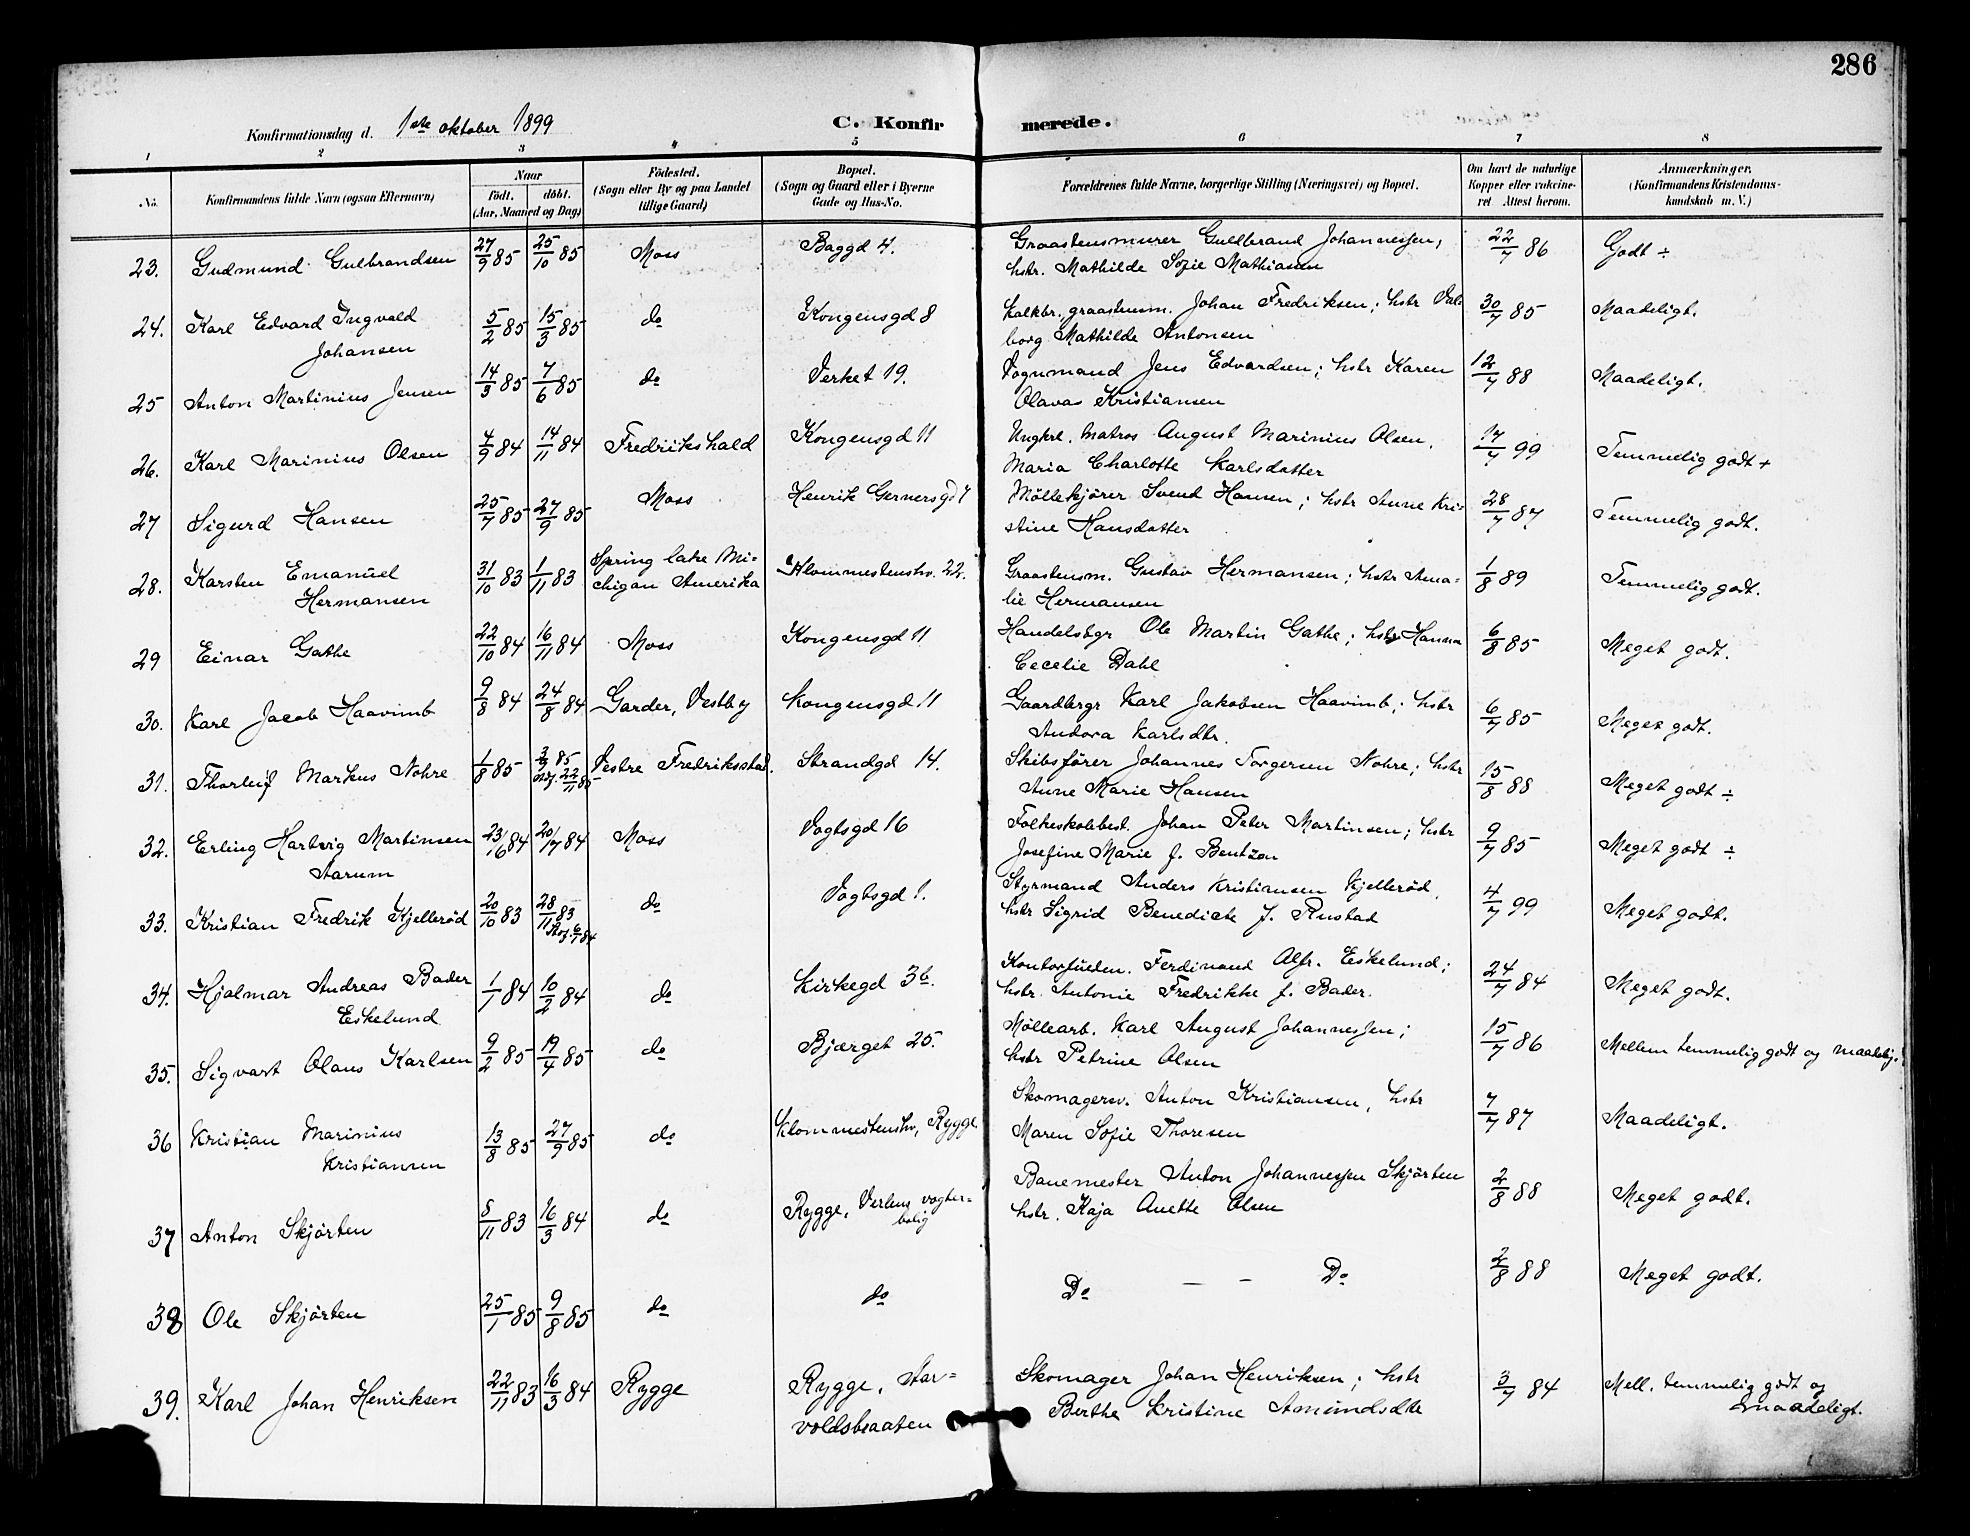 286
Konfirmationsdag d. 1ste oktober 1899 C. Konfirmerede.
1 2 3 4 5 6 7 8
No.
Konfirmandens fulde Navn (ogsaa Efternavn)
Naar
födt. döbt.
(Aar, Maaned og Dag)
Födested.
(Sogn eller By og paa Landet
tillige Gaard)
Bopæl.
(Sogn og Gaard eller i Byerne
Gade og Hus-No.
Forældrenes fulde Navne, borgerlige Stilling (Næringsvei) og Bopæl.
Om havt de naturlige
Kopper eller vakcine-
ret Attest herom.
Anmærkninger.
(Konfirmandens Kristendoms-
kundskab m. V.)
23. Gudmund Gulbrandsen 27/9 85 25/10 85 Moss Baggd 4. Graastensmurer Guldbrand Johannessen, 22/7 86 Godt ÷
hstr. Mathilde Sofie Mathiasen
24. Karl Edvard Ingvald 5/2 85 15/3 85 do Kongensgd 8 Kalkbr., graastensm. Johan Fredriksen; hstr Val- 30/7 85 Maadeligt.
Johansen borg Mathilde Antonsen
25 Anton Martinius Jensen 14/3 85 7/6 85 do Verket 19. Vognmand Jens Edvardsen; hstr Karen 12/7 88 Maadeligt.
Olava Kristiansen
26. Karl Marinius Olsen 4/9 84 14/11 84 Fredrikshald Kongensgd 11 Ungkrl. Matros August Marinius Olsen, 17/7 99 Temmelig godt +
Maria Charlotte Karlsdatter
27 Sigurd Hansen 25/7 85 27/9 85 Moss Henrik Gernersgd 7 Möllekjörer Svend Hansen; hstr Anne Kri- 28/7 87 Temmelig godt.
stine Hansdatter
28. Karsten Emanuel 31/10 83 1/11 83 Spring lake Mi- Klommestenshv. 22. Graastensm. Gustav Hermansen; hstr Ama- 1/8 89 Temmelig godt.
Hermansen chigan Amerika lie Hermansen
29 Einar Gathe 22/10 84 16/11 84 Moss Kongensgd 11 Handelsbgr Ole Martin Gathe; hstr Hanna 6/8 85 Meget godt.
Cecelie Dahl
30. Karl Jacob Haavimb 9/8 84 24/8 84 Garder, Vestby Kongensgd 11 Gaardbrgr Karl Jakobsen Haavimb; hstr 6/7 85 Meget godt.
Andora Karlsdtr.
31. Thorleif Markus Nohre 1/8 85 3/9 85 22/11 85 Vestre Fredriksstad. Strandgd 14. Skibsförer Johannes Torgersen Nohre; hstr 15/8 88 Meget godt ÷
Anne Marie Hansen
32. Erling Hartvig Martinsen 23/6 84 20/7 84 Moss Vogtsgd 16 Folkeskolebest. Johan Peter Martinsen; hstr 9/7 85 Meget godt ÷
Aarum Josefine Marie f. Bentzen
33. Kristian Fredrik Kjelleröd 20/10 83 28/11 83 Stadf. 6/1 84 do Vogtsgd 1. Styrmand Anders Kristiansen Kjelleröd, 4/7 99 Meget godt.
hstr Sigrid Benedicte f. Rustad
34. Hjalmar Andreas Bader 1/1 84 10/2 84 do Kirkegd 36. Kontorfuldm. Ferdinand Alfr. Eskelund; 24/7 84 Meget godt.
Eskelund hstr. Antonie Fredrikke f. Bader.
35. Sigvart Olaus Karlsen 9/2 85 19/4 85 do Bjærget 25. Möllearb. Karl August Johannessen; 15/7 86 Mellem temmelig godt og maadelig.
hstr Petrine Olsen
36 Kristian Marinius 13/8 85 27/9 85 do Klommestenshv, Rygge Skomagersv. Anton Kristiansen, hstr 7/7 87 Maadeligt.
Kristiansen Maren Sofie Thoresen
37 Anton Skjörten 8/11 83 16/3 84 do Rygge, Verlens vogter- Banemester Anton Johannessen Skjörten 2/8 88 Meget godt.
bolig hstr. Kaja Anette Olsen
38 Ole Skjörten 25/1 85 9/8 85 do do Do — — Do 2/8 88 Meget godt.
39. Karl Johan Henriksen 22/11 83 16/3 84 Rygge Rygge, Aar- Skomager Johan Henriksen; hstr 3/7 84 Mell. temmelig godt og
voldsbraaten Berthe Kristine Amundsdtr maadeligt.